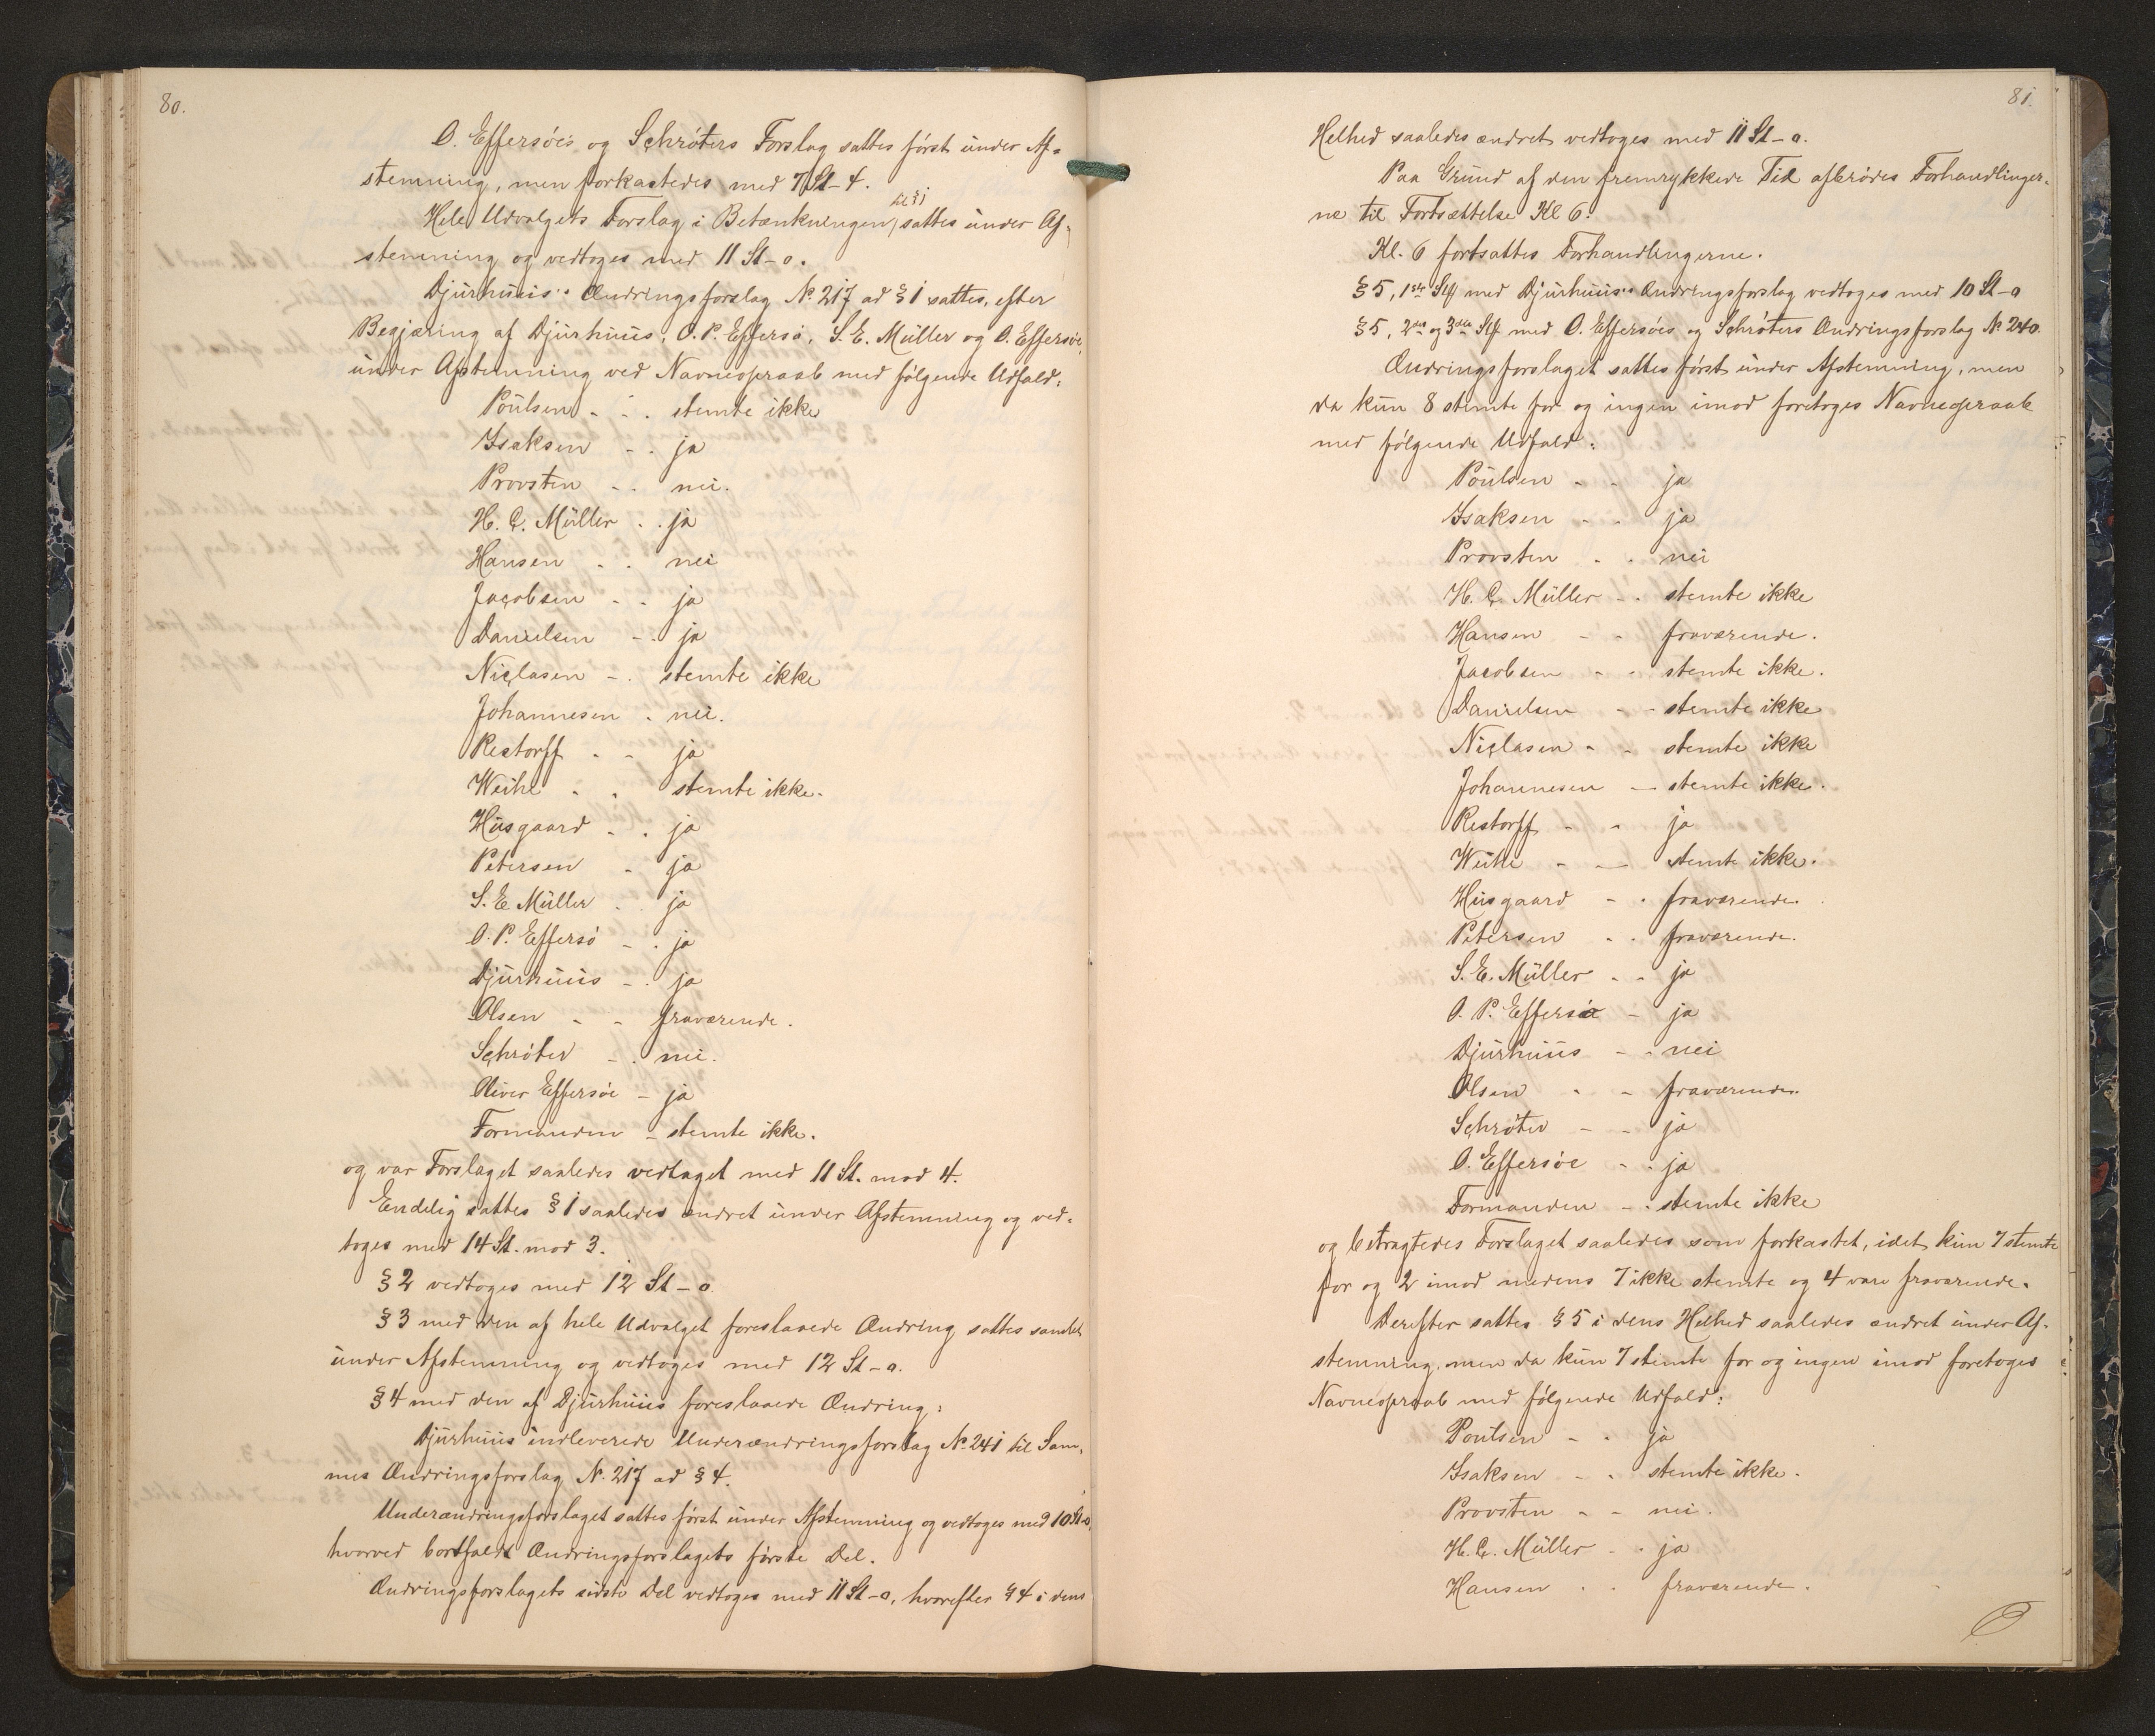 80.
O. Effersøes og Schrøters Forslag sattes först under Af-
stemning, men forkastedes med 7 St - 4.
til § 1
Hele Udvalgets Forslag i Betænkningen sattes under Af-
stemning og vedtoges med 11 St - o.
Djurhuus's Ændringsforslag No. 217 ad § 1 sattes, efter
Begjæring af Djurhuus, O. P. Effersø, S. E. Müller og O. Effersøe,
under Afstemning ved Navneopraab med følgende Udfald:
Poulsen - - . stemte ikke
Isaksen - . ja
Provsten - - nei.
H. C. Müller . . ja
Hansen . . nei
Jacobsen - - ja
Danielsen - . ja
Niclasen - . stemte ikke
Johannesen . nei.
Restorff - - ja
Weihe - - stemte ikke.
Husgaard - . ja
Petersen - ja
S. E Müller . . ja
O. P. Effersø - . ja
Djurhuus - . ja
Olsen - - fraværende.
Schrøter - . nei.
Oliver Effersøe - ja
Formanden - stemte ikke.
og var Forslaget saaledes vedtaget med 11 St. mod 4.
Endelig sattes § 1 saaledes ændret under Afstemning og ved-
toges med 14 St. mod 3.
§ 2 vedtoges med 12 St - o.
§ 3 med den af hele Udvalget foreslaaede Ændring sattes samlet
under Afstemning og vedtoges med 12 St - o.
§ 4 med den af Djurhuus foreslaaede Ændring:
Djurhuus indleverede Underændringsforslag No. 241 til Sam-
mes Ændringsforslag N. 217 ad § 4.
Underændringsforslaget sattes først under Afstemning og vedtoges med 10 St - o,
hvorved bortfaldt Ændringsforslagets første Del.
Ændringsforslagets sidste Del vedtoges med 11 St - o, hvorefter § 4 i dens
81.
Helhed saaledes ændret vedtoges med 11 St - o.
Paa Grund af den fremrykkede Tid afbrødes Forhandlinger-
ne til Fortsættelse Kl 6.
Kl. 6 fortsattes Forhandlingerne.
§ 5, 1ste Stk med Djurhuus's Ændringsforslag vedtoges med 10 St - o
§ 5, 2det og 3die Stk med O. Effersøes og Schrøters Ændringsforslag No 240.
Ændringsforslaget sattes først under Afstemning, men
da kun 8 stemte for og ingen imod foretoges Navneopraab
med følgende Udfald:
Poulsen - - ja
Isaksen - - ja
Provsten . . nei
H. C. Müller - . stemte ikke
Hansen - - fraværende.
Jacobsen - - stemte ikke.
Danielsen - - stemte ikke
Niclasen - - stemte ikke
Johannesen - stemte ikke.
Restorff - - ja
Weihe - - stemte ikke.
Husgaard - . fraværende.
Petersen . . fraværende.
S. E. Müller . - ja
O. P. Effersøe - ja
Djurhuus - - nei
Olsen . - fraværende.
Schrøter - - ja
O. Effersøe - . ja
Formanden - . stemte ikke
og betragtedes Forslaget saaledes som forkastet, idet kun 7 stemte
for og 2 imod medens 7 ikke stemte og 4 vare fraværende.
Derefter sattes § 5 i dens Helhed saaledes ændret under Af-
stemning, men da kun 7 stemte for og ingen imod foretoges
Navneopraab med følgende Udfald:
Poulsen - . ja
Isaksen - . stemte ikke.
Provsten - - nei.
H. C. Müller - . ja
Hansen . . fraværende.